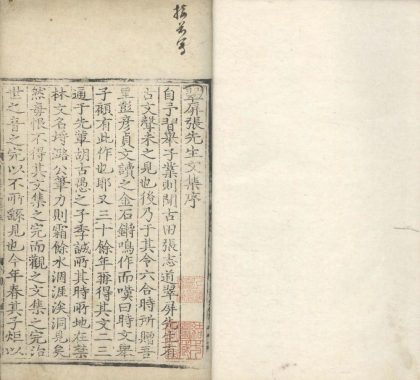 翠屏張先生文集序
自予習舉子業則聞古田張志道翠屏先生有
古文聲未之見也後乃于其令六合時所贈吾
里彭彦貞文讀之金石鏘鳴作而嘆曰時文舉
子顧有此作也耶又三十餘年再得其文二三
通于先輩胡古愚之子季誠所其時所地在禁
林文名埒潞公筆力則霜餘水涸涯涘洞見矣
然每恨不得其文集之完而觀之文集之完治
世之音之完以不所錄見也今年春其子炬以